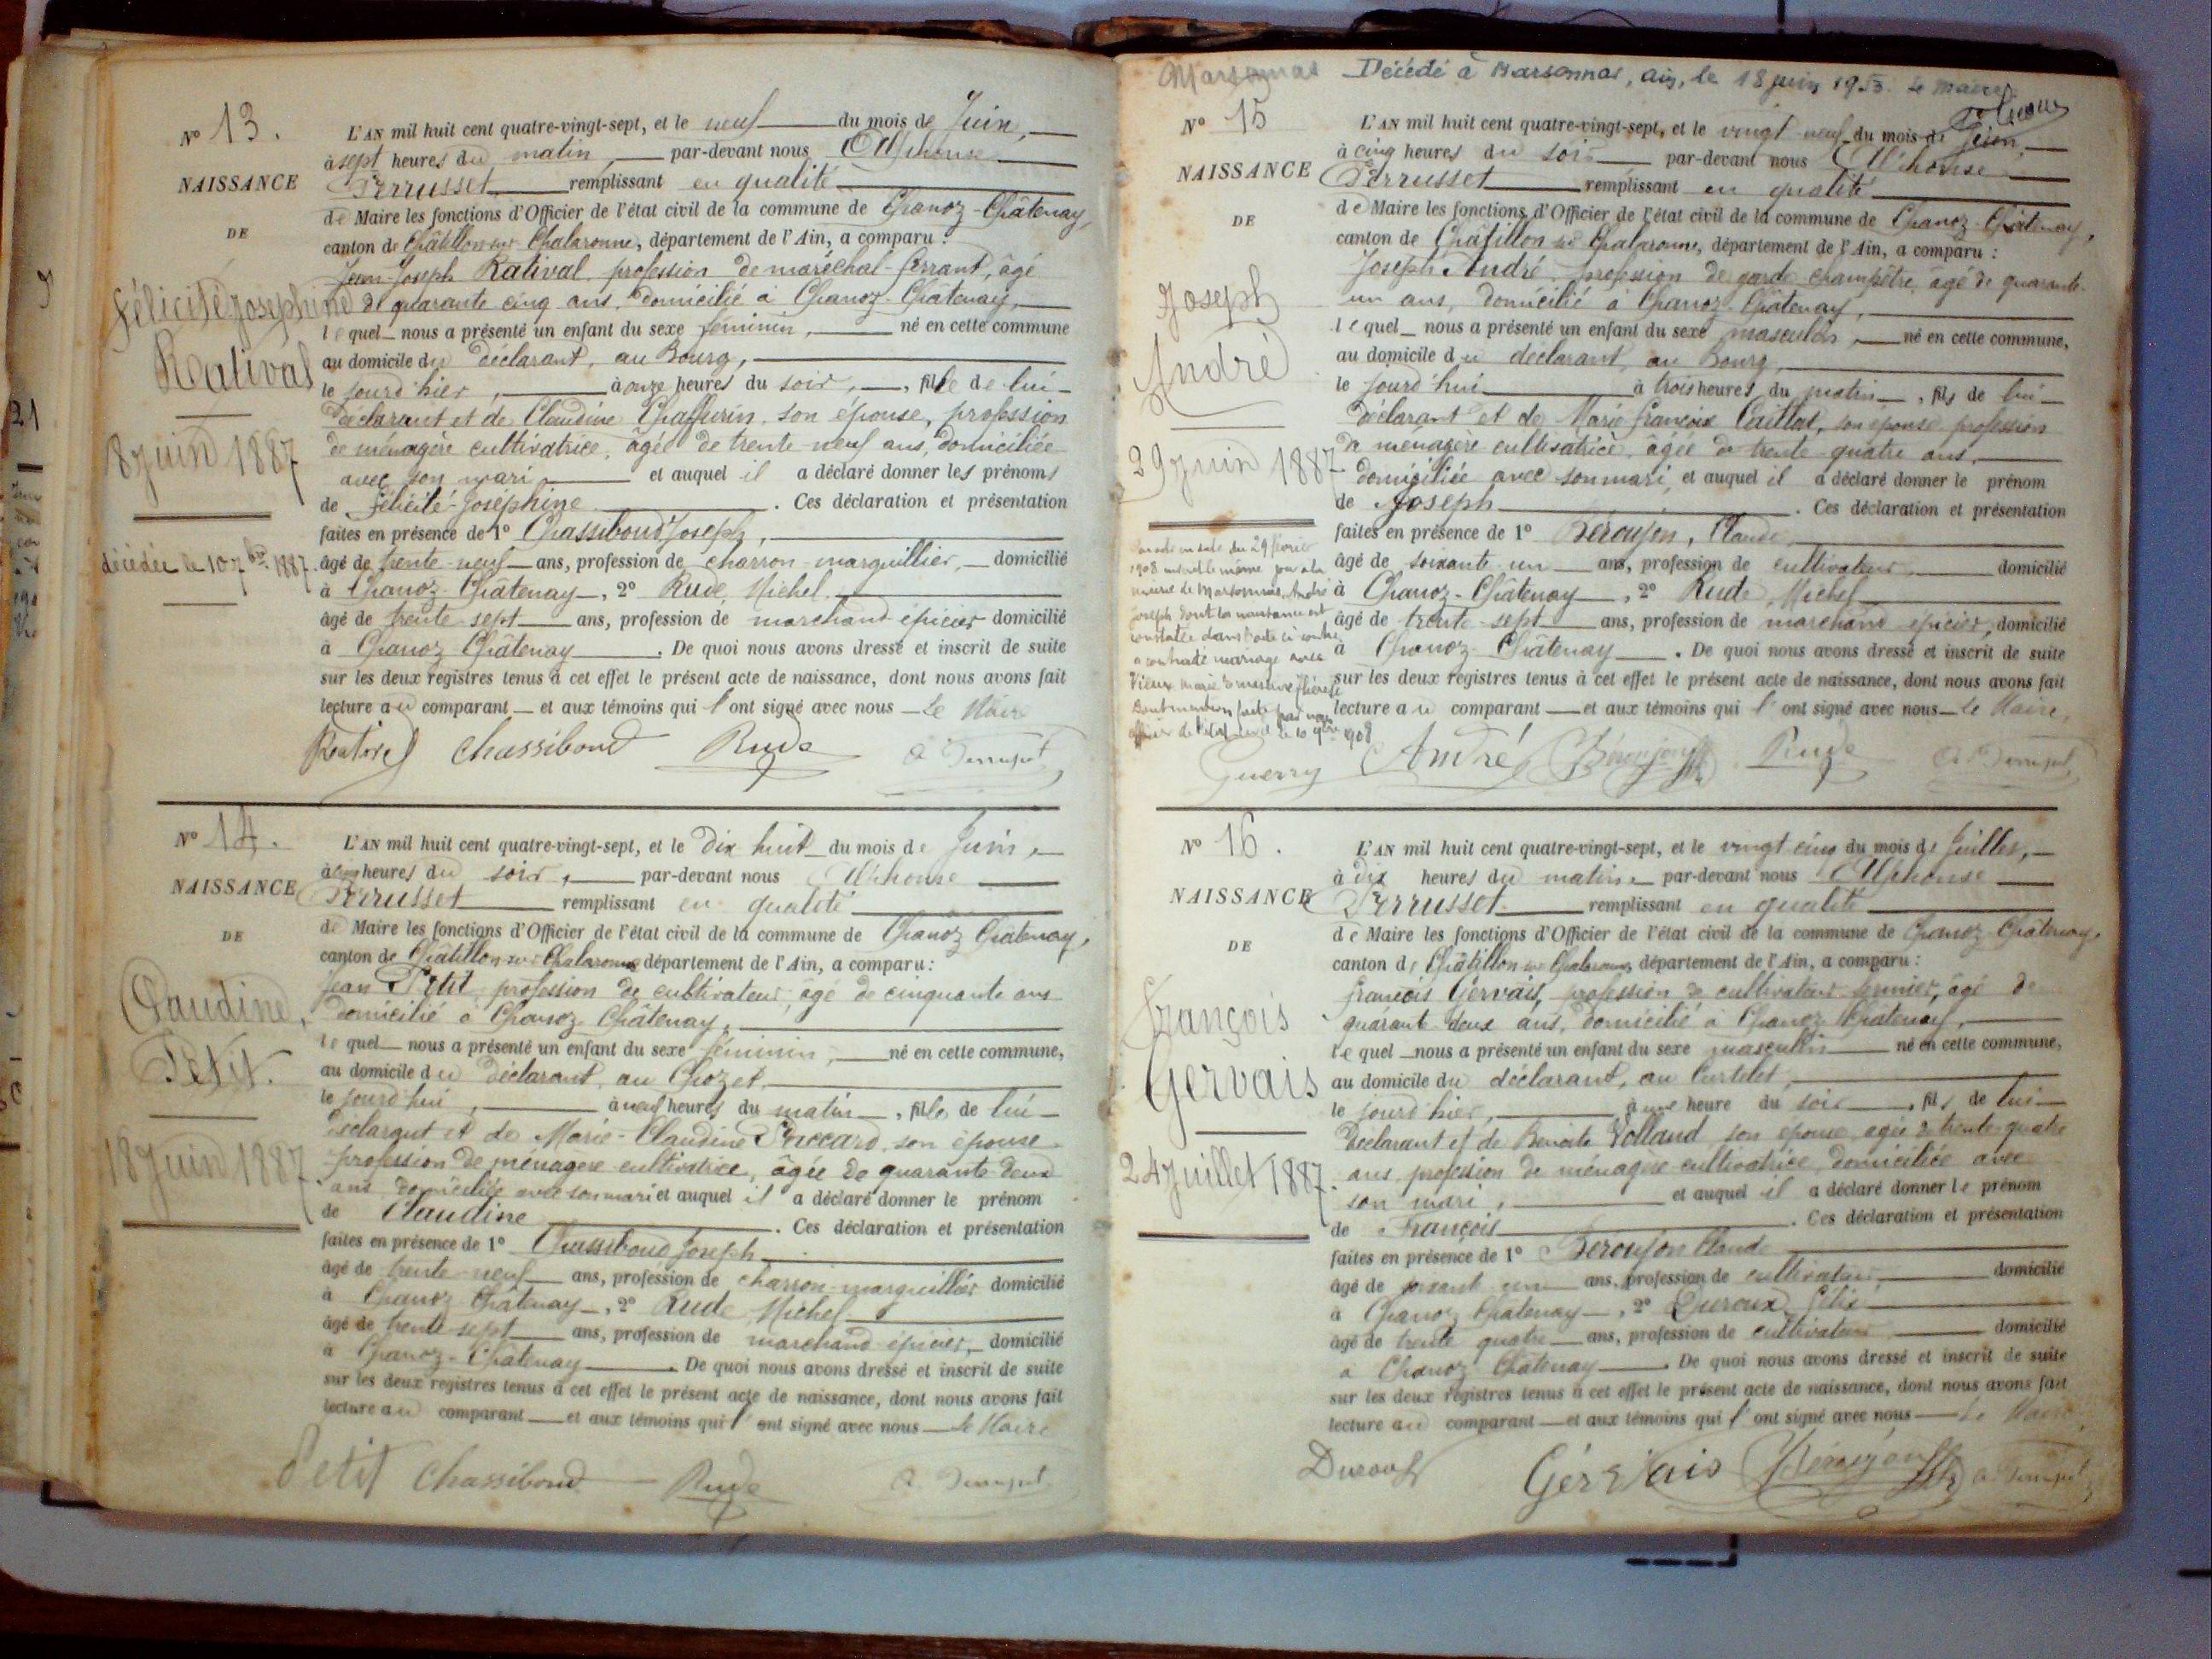 Nº 13.
NAISSANCE
DE
Félicité Joséphine
Rativat
8 Juin 1887
décédée le 10 7bre 1887.
L'AN mil huit cent quatre-vingt-sept, et le neuf du mois de Juin,
à sept heures du matin, par-devant nous Alphonse
Perrusset remplissant en qualité
de Maire les fonctions d'Officier de l'état civil de la commune de Chanoz-Châtenay,
canton de Châtillon sur Chalaronne, département de l'Ain, a comparu :
Jean-Joseph Rativat, profession de maréchal-ferrant, âgé
de quarante cinq ans, domicilié à Chanoz-Châtenay,
lequel nous a présenté un enfant du sexe féminin, né en cette commune
au domicile du déclarant, au Bourg,
le jourd'hier, à onze heures du soir, fille de lui
déclarant et de Claudine Chaffurin, son épouse, profession
de ménagère cultivatrice, âgée de trente-neuf ans, domiciliée
avec son mari et auquel il a déclaré donner les prénoms
de Félicité-Joséphine. Ces déclaration et présentation
faites en présence de 1º Chassiboud Joseph,
âgé de trente-neuf ans, profession de charron-marguillier, domicilié
à Chanoz-Châtenay, 2º Rude, Michel
âgé de trente-sept ans, profession de marchand épicier domicilié
à Chanoz-Châtenay. De quoi nous avons dressé et inscrit de suite
sur les deux registres tenus à cet effet le présent acte de naissance, dont nous avons fait
lecture au comparant et aux témoins qui l'ont signé avec nous Le Maire
Chassiboud Rude
Nº 14.
NAISSANCE
DE
Claudine,
Petit.
18 Juin 1887
L'AN mil huit cent quatre-vingt-sept, et le dix huit du mois de Juin,
à cinq heures du soir, par-devant nous Alphonse
Perrusset remplissant en qualité
de Maire les fonctions d'Officier de l'état civil de la commune de Chanoz Châtenay,
canton de Châtillon-sur-Chalaronne département de l'Ain, a comparu :
Jean Petit, profession de cultivateur, âgé de cinquante ans
domicilié à Chanoz-Châtenay,
lequel nous a présenté un enfant du sexe féminin, né en cette commune,
au domicile du déclarant, au Chozet,
le jourd'hui, à neuf heures du matin, fille de lui
déclarant et de Marie-Claudine son épouse
profession de ménagère cultivatrice, âgée de quarante deux
ans, domiciliée avec son mari et auquel il a déclaré donner le prénom
de Claudine. Ces déclaration et présentation
faites en présence de 1º Chassiboud Joseph
âgé de trente-neuf ans, profession de charron-marguillier domicilié
à Chanoz Châtenay, 2º Rude, Michel
âgé de trente-sept ans, profession de marchand épicier, domicilié
à Chanoz-Châtenay. De quoi nous avons dressé et inscrit de suite
sur les deux registres tenus à cet effet le présent acte de naissance, dont nous avons fait
lecture au comparant et aux témoins qui l'ont signé avec nous Le Maire
Petit Chassiboud Rude
Marsonnas Décédé à Marsonnas, ain, le 18 juin 1953. Le maire
Nº 15
NAISSANCE
DE
Joseph
André
29 Juin 1887
L'AN mil huit cent quatre-vingt-sept, et le vingt-neuf du mois de Juin,
à cinq heures du soir par-devant nous Alphonse
Perrusset remplissant en qualité
de Maire les fonctions d'Officier de l'état civil de la commune de Chanoz-Châtenay,
canton de Châtillon sur Chalaronne, département de l'Ain, a comparu :
Joseph André, profession de garde champêtre, âgé de quarante-
un ans, domicilié à Chanoz-Châtenay,
lequel nous a présenté un enfant du sexe masculin, né en cette commune,
au domicile du déclarant, au Bourg,
le jourd'hui à trois heures du matin, fils de lui
déclarant et de Marie Françoise Caillat, son épouse profession
de ménagère cultivatrice, âgée de trente quatre ans,
domiciliée avec son mari, et auquel il a déclaré donner le prénom
de Joseph. Ces déclaration et présentation
faites en présence de 1º Béroujon, Claude,
âgé de soixante-un ans, profession de cultivateur, domicilié
à Chanoz-Châtenay, 2º Rude, Michel
âgé de trente-sept ans, profession de marchand épicier, domicilié
à Chanoz-Châtenay. De quoi nous avons dressé et inscrit de suite
sur les deux registres tenus à cet effet le présent acte de naissance, dont nous avons fait
lecture au comparant et aux témoins qui l'ont signé avec nous Le Maire,
Par acte en date du 29 février
1908
mairie de Marsonnas, André
Joseph dont la naissance est
constatée dans l'acte ci-contre
a contracté mariage avec
Vieux Marie
Dont mention faite par nous
officier de l'état civil le 10 9bre 1908
Guerry André Béroujon Rude
Nº 16.
NAISSANCE
DE
François
Gervais
24 Juillet 1887.
L'AN mil huit cent quatre-vingt-sept, et le vingt cinq du mois de Juillet,
à dix heures du matin par-devant nous Alphonse
Perrusset remplissant en qualité
de Maire les fonctions d'Officier de l'état civil de la commune de Chanoz-Châtenay,
canton de Châtillon sur Chalaronne, département de l'Ain, a comparu :
François Gervais, profession de cultivateur fermier, âgé de
quarante deux ans, domicilié à Chanoz Châtenay,
lequel nous a présenté un enfant du sexe masculin né en cette commune,
au domicile du déclarant, au Curtelet,
le jourd'hier, à une heure du soir, fils de lui
déclarant et de Benoite Volland son épouse, âgée de trente quatre
ans, profession de ménagère-cultivatrice, domiciliée avec
son mari, et auquel il a déclaré donner le prénom
de François. Ces déclaration et présentation
faites en présence de 1º Béroujon Claude
âgé de soixante un ans, profession de cultivateur, domicilié
à Chanoz Châtenay, 2º Duroux, Félix
âgé de trente quatre ans, profession de cultivateur domicilié
à Chanoz Châtenay. De quoi nous avons dressé et inscrit de suite
sur les deux registres tenus à cet effet le présent acte de naissance, dont nous avons fait
lecture au comparant et aux témoins qui l'ont signé avec nous Le Maire
Duroux Gervais Béroujon